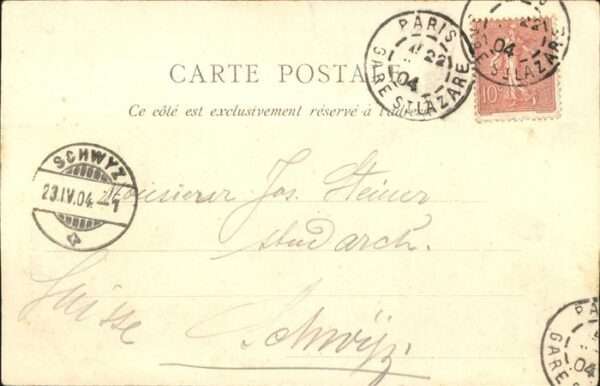 PARIS
22
04
GARE ST LAZARE
PARIS
22
04
GARE ST LAZARE
10c
CARTE POSTALE
Ce côté est exclusivement réservé à l'adresse
SCHWYZ
23.IV.04.-1
Monsieur Jos. Steiner
stud arch.
Suisse Schwÿz.
PA
04
GARE